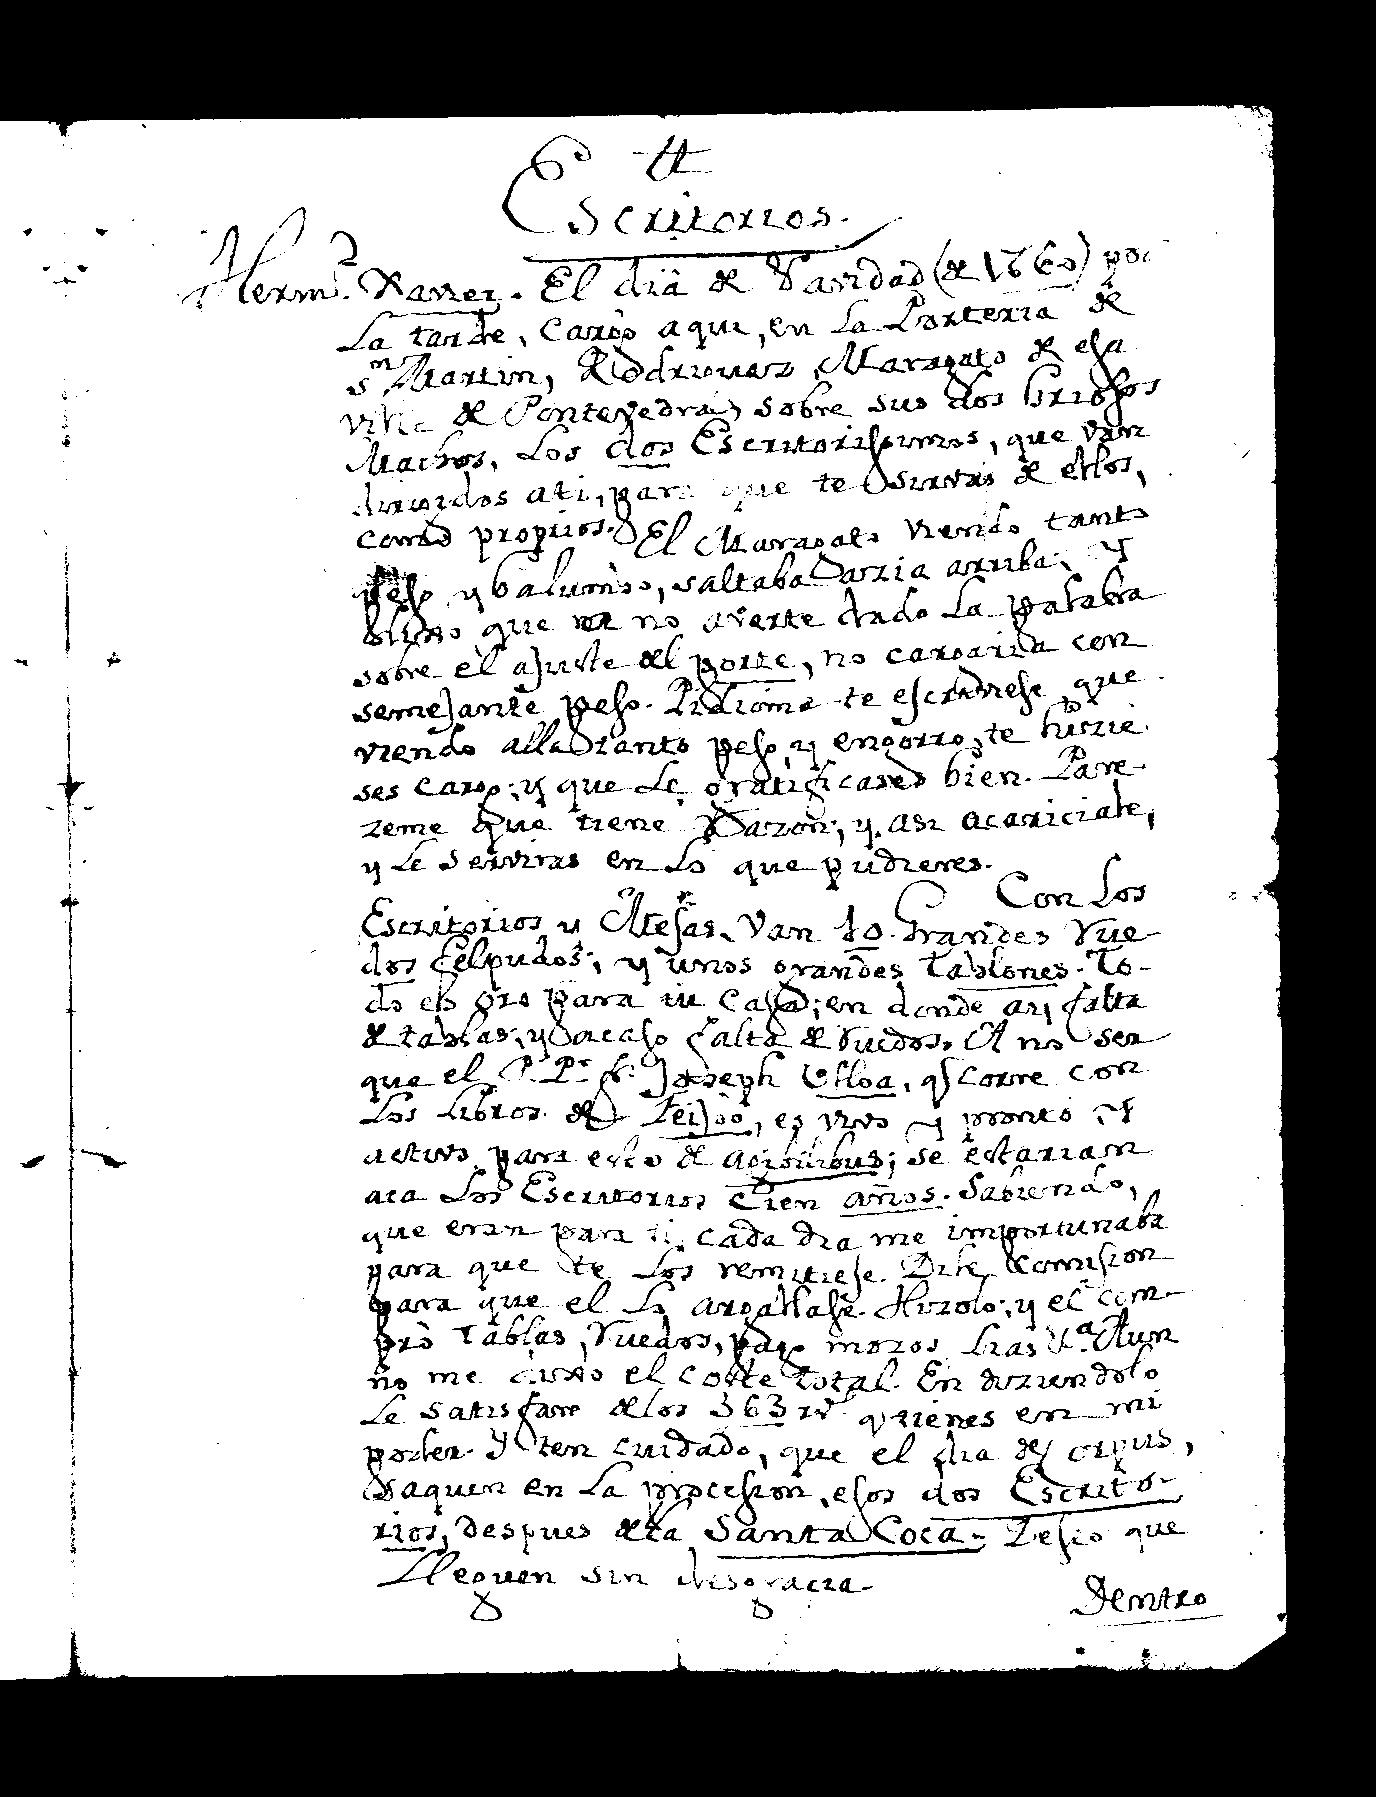 Escritorios.
Herm.o Xavier. El dia de Navidad (de 1760) por
la tarde, cargò aqui, en la Porteria de
S.n Martin, Rodriguez, Maragato de esa
Villa de Pontevedra, sobre sus dos briosos
Machos, los dos Escritorisimos, que van
dirigidos a ti, para que te sirvas de ellos,
como proprios. El Maragato viendo tanto
peso y balumbo, saltaba azia arriba; y
dixo que a no averte dado la palabra
sobre el ajuste del porte, no cargaria con
semejante peso. Pidiome te escriviese, que
viendo alla tanto peso, y engorro, te hizie-
ses cargo; y que le gratificases bien. Pare-
zeme que tiene Razon; y asi acariciale,
y le serviras en lo que pudieres.
Con los
Escritorios y Mesas, van 10. grandes Rue-
dos felpudos; y unos grandes tablones. To-
do es oro para tu casa; en donde ay falta
de tablas; y acaso falta de Ruedos. A no ser
que el P. P.r fr. Joseph Ulloa, q corre con
los libros de Feijoò, es vivo y pronto y
activo para esto de agibilibus; se estarian
aca los Escritorios Cien años. Sabiendo,
que eran para ti, cada dia me importunaba
para que te los remitiese. Dile comision
para que el lo argallase. Hizolo; y el com-
prò tablas, Ruedos, pagò mozos &.a Aun
no me dixo el coste total. En diziendolo
le satisfare de los 363 r.s q tienes en mi
poder. Y ten cuidado, que el dia de Corpus,
saquen en la procesion, esos dos Escrito-
rios, despues de la Santa Coca. Deseo que
lleguen sin desgracia.
Dentro